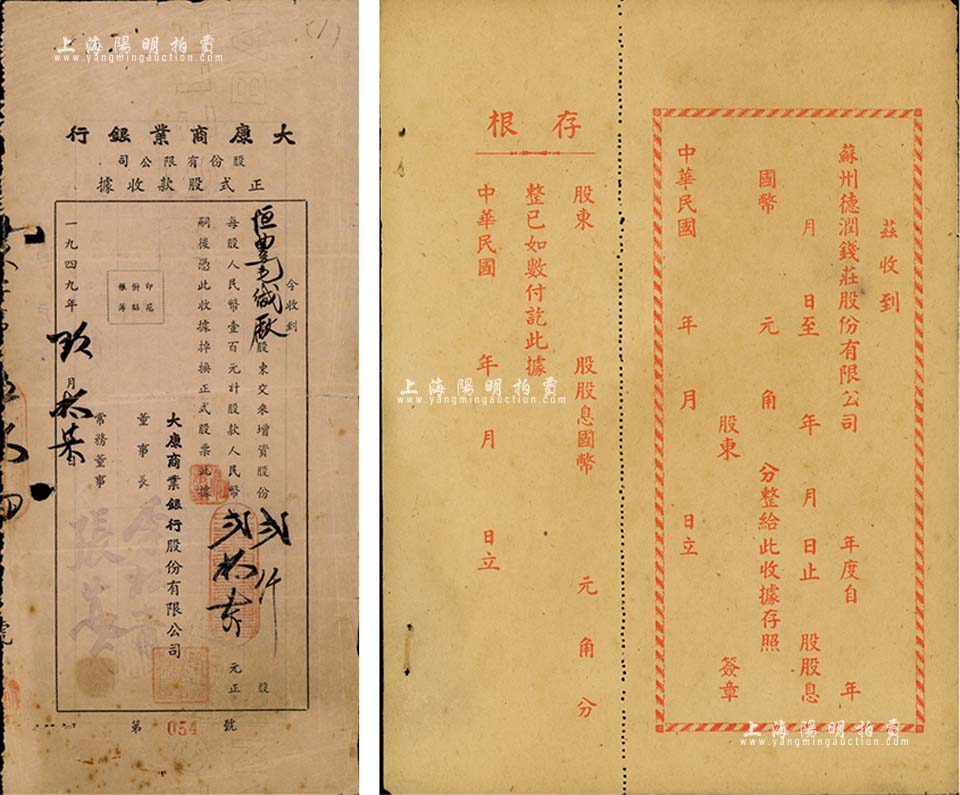 上海陽明拍賣
www.yangmingauction.com
(1)
大康商業銀行
股份有限公司
正式股款收據
今收到
恒豐 股東交來增資股份 貳仟 股
每股人民幣壹百元計股款人民幣 貳拾萬 元正
嗣後憑此收據掉換正式股票此據
大康商業銀行股份有限公司
董事長
常務董事
印花
另貼
帳簿
一九四九年 玖 月
第 054 號
存根
股東 股股息國幣 元 角 分
整已如數付訖此據
中華民國 年 月 日立
上海陽明拍賣
www.yangmingauction.com
茲收到
蘇州德潤錢莊股份有限公司 年度自 年
月 日至 年 月 日止 股股息
國幣 元 角 分整給此收據存照
股東 簽章
中華民國 年 月 日立
上海陽明拍賣
www.yangmingauction.com